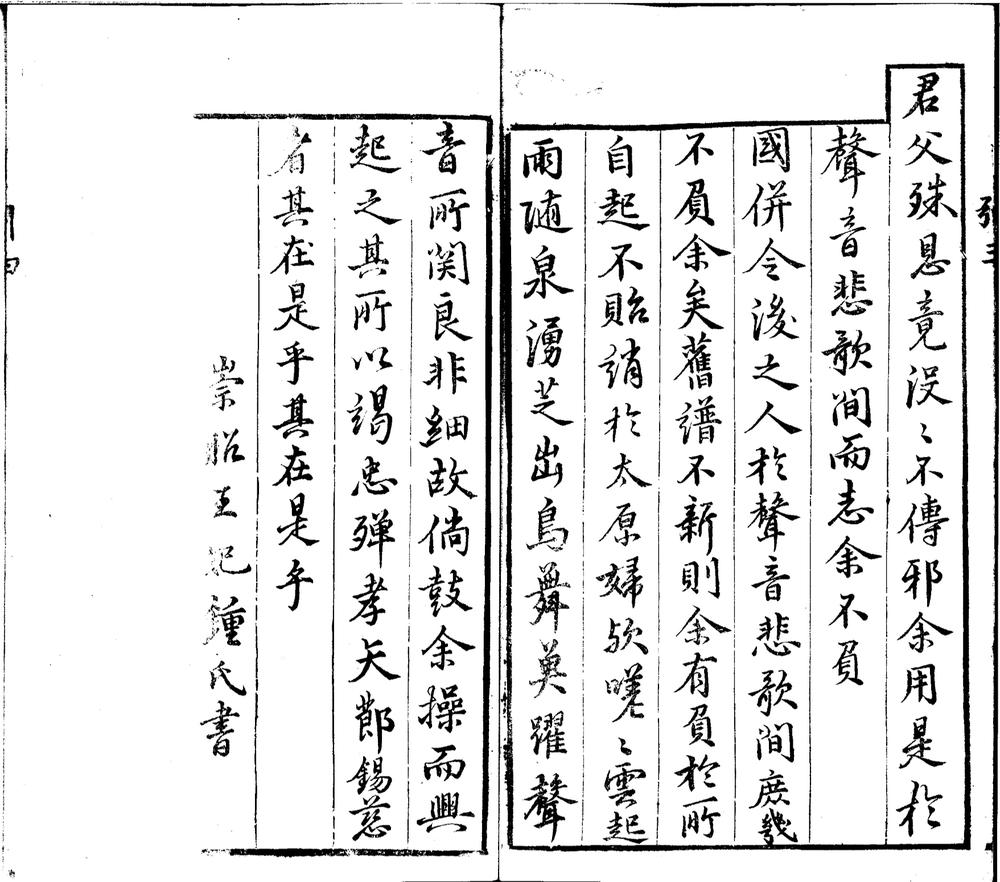 君父殊恩竟没〻不傳邪余用是於
聲音悲歌間而志余不負
國併令後之人於聲音悲歌間庶幾
不負余矣舊譜不新則余有負於所
自起不貽誚於太原婦欤嗟〻雲起
雨随泉湧芝出鳥舞英躍聲
音所関良非細故倘鼓余操而興
起之其所以竭忠殫孝矢節錫慈
者其在是乎其在是乎
崇昭王妃鍾氏書